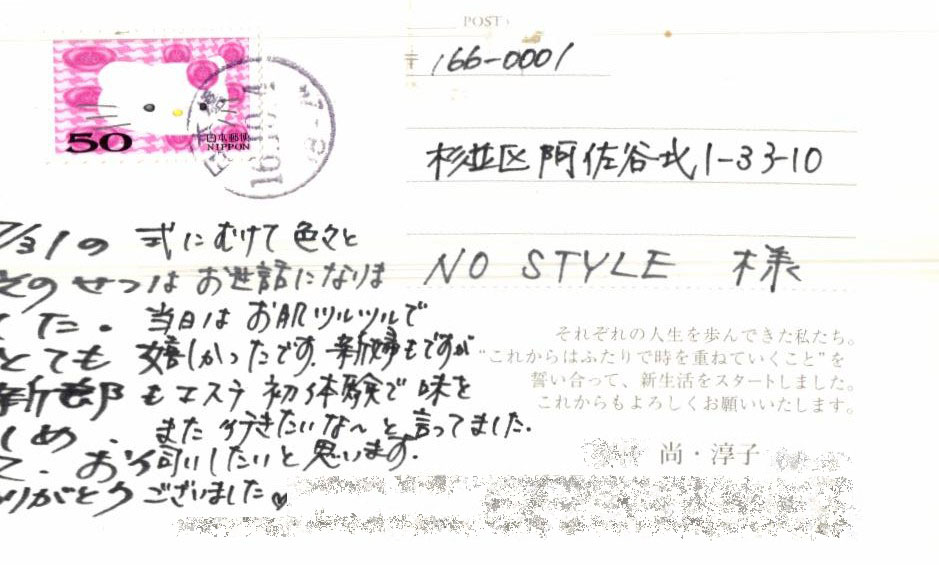 POST
50
日本郵便
NIPPON
166-0001
杉並区阿佐谷北1-33-10
NO STYLE 様
7/31の 式にむけて色々と
そのせつは お世話になりま
した。当日は お肌ツルツルで
とても 嬉しかったです。新婦もですが
新郎もエステ初体験で味を
しめ、また行きたいな〜と言ってました。
お伺いしたいと思います。
ありがとうございました
それぞれの人生を歩んできた私たち。
"これからはふたりで時を重ねていくこと"を
誓い合って、新生活をスタートしました。
これからもよろしくお願いいたします。
尚・淳子